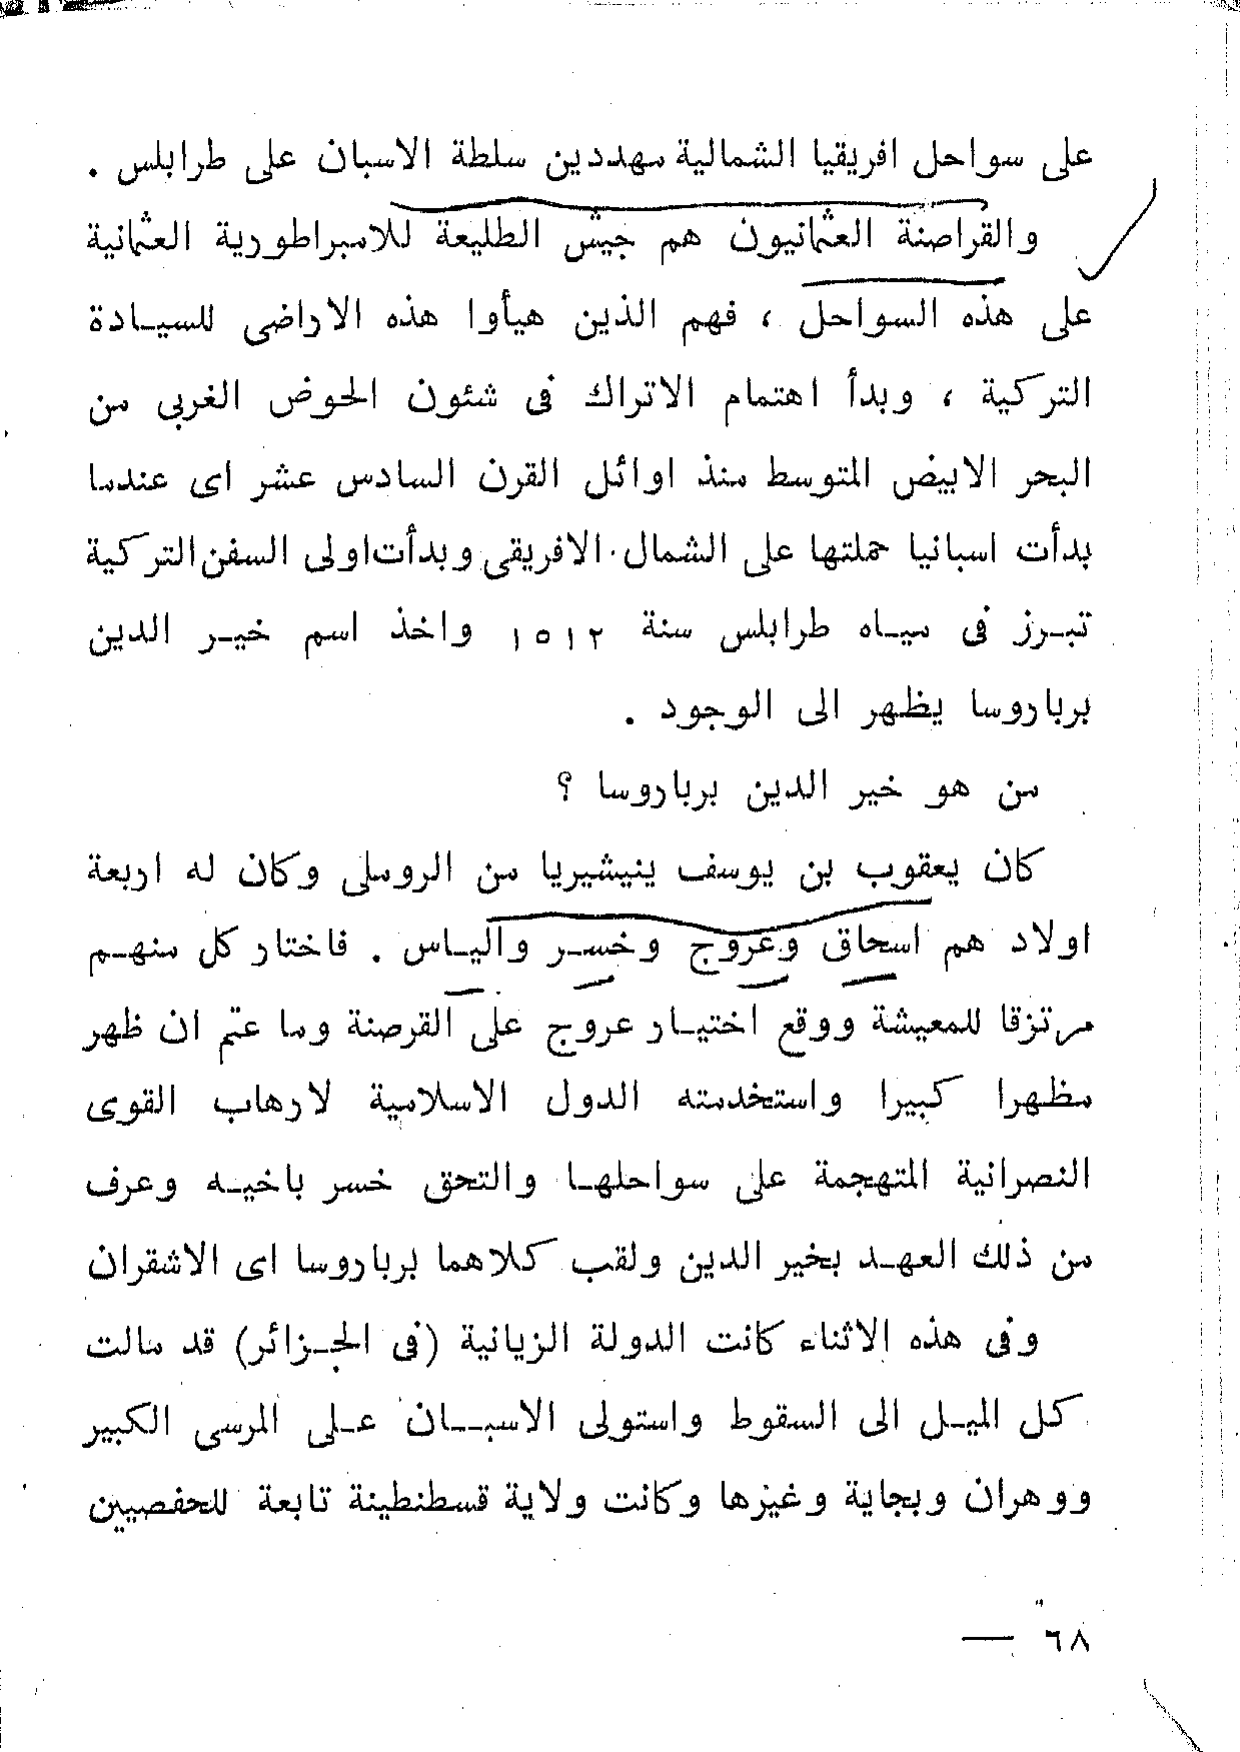 على سواحل افريقيا الشمالية مهددين سلطة الاسبان على طرابلس .
والقراصنة العثمانيون هم جيش الطليعة للامبراطورية العثمانية
على هذه السواحل ، فهم الذين هيأوا هذه الاراضى للسيادة
التركية ، وبدأ اهتمام الاتراك فى شئون الحوض الغربى من
البحر الابيض المتوسط منذ اوائل القرن السادس عشر اى عندما
بدأت اسبانيا حملتها على الشمال الافريقى وبدأت اولى السفن التركية
تبرز فى مياه طرابلس سنة ١٥١٢ واخذ اسم خير الدين
برباروسا يظهر الى الوجود .
من هو خير الدين برباروسا ؟
كان يعقوب بن يوسف ينيشيريا من الروملى وكان له اربعة
اولاد هم اسحاق وعروج وخسر والياس . فاختار كل منهم
مرتزقا للمعيشة ووقع اختيار عروج على القرصنة وما عتم ان ظهر
مظهرا كبيرا واستخدمته الدول الاسلامية لارهاب القوى
النصرانية المتهجمة على سواحلها والتحق خسر باخيه وعرف
من ذلك العهد بخير الدين ولقب كلاهما برباروسا اى الاشقران
وفى هذه الاثناء كانت الدولة الزيانية (فى الجزائر) قد مالت
كل الميل الى السقوط واستولى الاسبان على المرسى الكبير
ووهران وبجاية وغيرها وكانت ولاية قسطنطينة تابعة للحفصيين
٦٨ —